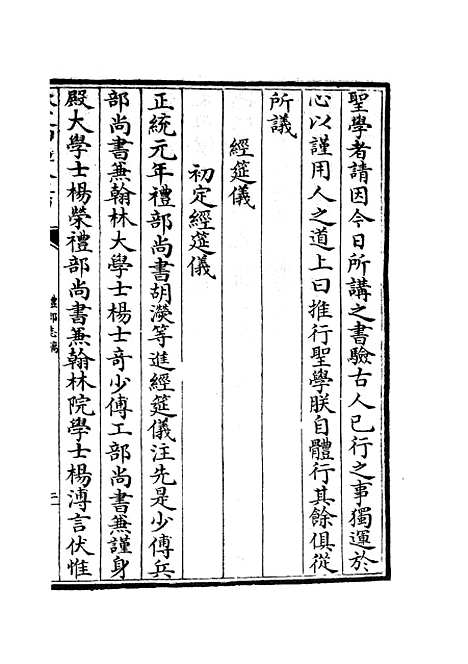 聖學者請因今日所講之書驗古人已行之事獨運於
心以謹用人之道上曰推行聖學朕自體行其餘俱從
所議
經筵儀
初定經筵儀
正統元年禮部尚書胡濙等進經筵儀注先是少傅兵
部尚書兼翰林大學士楊士奇少傅工部尚書兼謹身
殿大學士楊榮禮部尚書兼翰林院學士楊溥言伏惟
禮部志稿